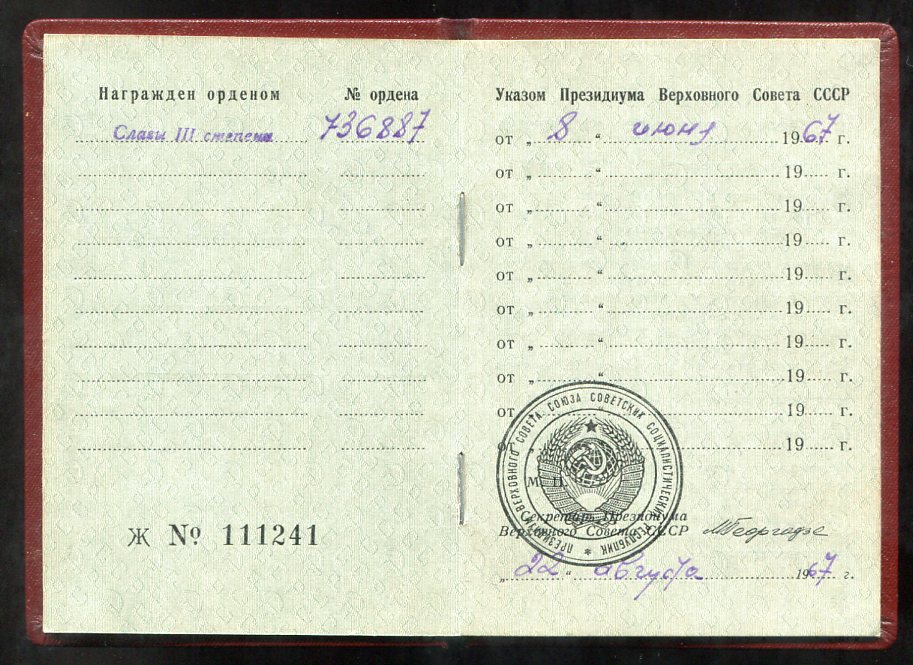 Награжден орденом № ордена
Славы III степени 736887
Ж № 111241
Указом Президиума Верховного Совета СССР
от „ 8 “ июня 1967 г.
от „ “ 19 г.
от „ “ 19 г.
от „ “ 19 г.
от „ “ 19 г.
от „ “ 19 г.
от „ “ 19 г.
от „ “ 19 г.
от „ “ 19 г.
от „ “ 19 г.
М. П.
ПРЕЗИДИУМ ВЕРХОВНОГО СОВЕТА СОЮЗА СОВЕТСКИХ СОЦИАЛИСТИЧЕСКИХ РЕСПУБЛИК
Секретарь Президиума
Верховного Совета СССР МГеоргадзе
„ 22 “ августа 1967 г.